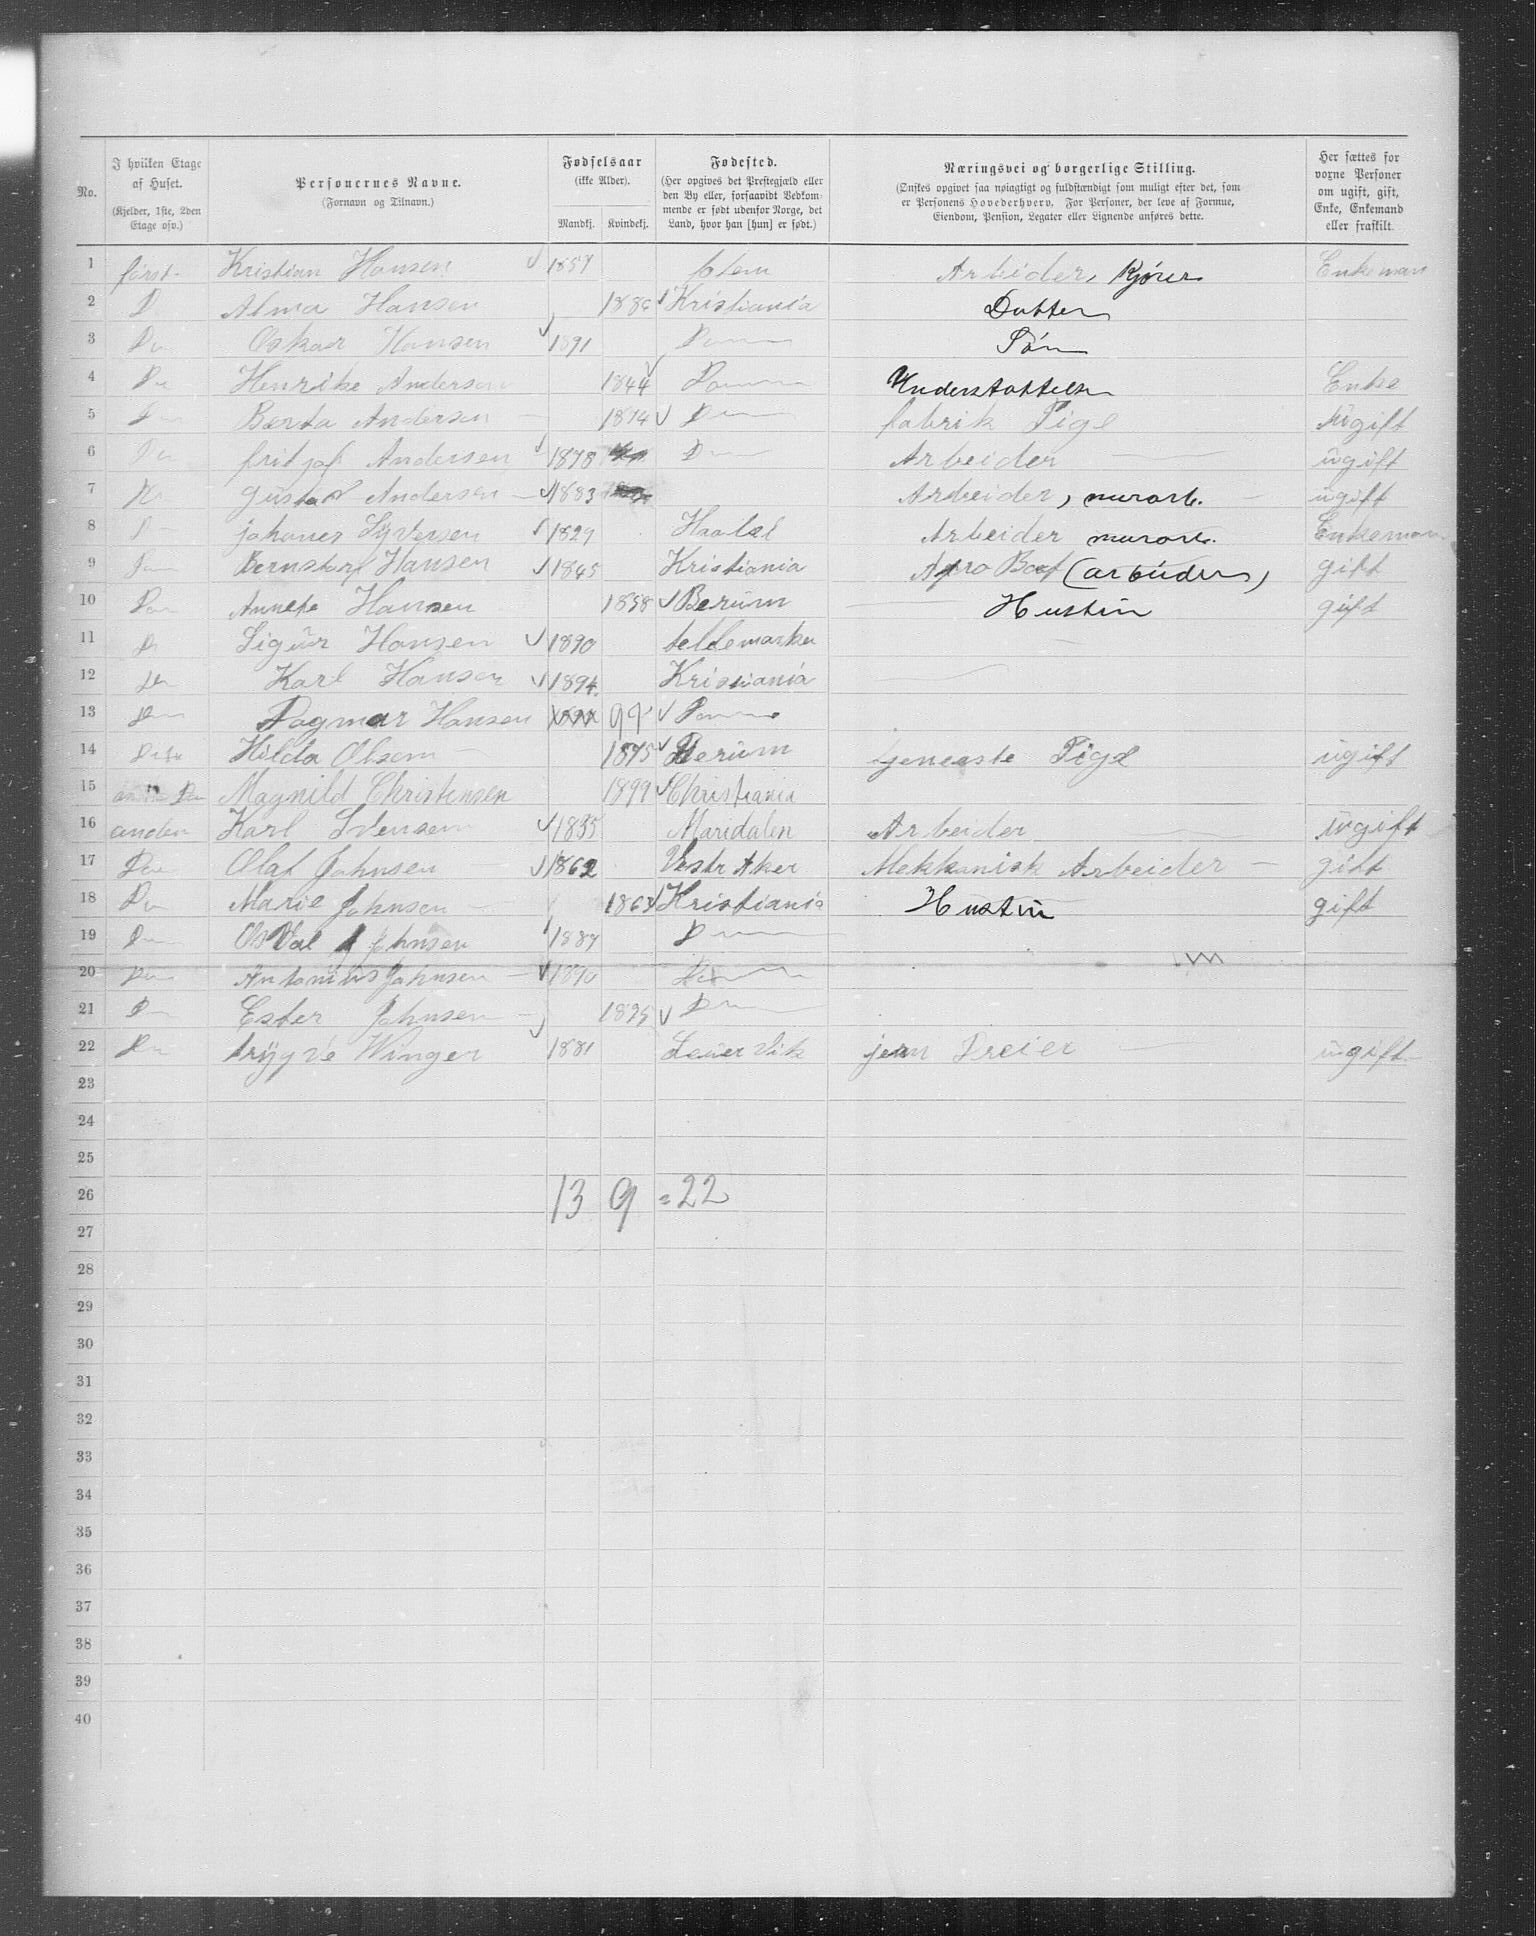 No.
I hvilken Etage af Huset. (Kjelder, 1ste, 2den Etage osv.)
Personernes Navne. (Fornavn og Tilnavn.)
Fødselsaar (ikke Alder). Mandkj. Kvindekj.
Fødested. (Her opgives det Prestegjæld eller den By eller, forsaavidt Vedkommende er født udenfor Norge, det Land, hvor han [hun] er født.)
Næringsvei og borgerlige Stilling. (Ønskes opgivet saa nøiagtigt og fuldstændigt som muligt efter det, som er Personens Hovederhverv. For Personer, der leve af Formue, Eiendom, Pension, Legater eller Lignende anføres dette.
Her sættes for voxne Personer om ugift, gift, Enke, Enkemand eller fraskilt.
1 først Kristian Hansen 1857 Arbeider, Kjører Enkeman
2 D Alma Hansen 1886 Kristiania Datter
3 Do Oskar Hansen 1891 Do Søn
4 Do Henrike Andersen 1844 Do Understøttelse Enke
5 Do Berta Andersen 1874 D fabrik Pige ugift
6 Do fritjof Andersen 1878 D Arbeider ugift
7 Gustav Andersen 1883 Arbeider, murarb. ugift
8 D johanes Syversen 1829 Arbeider murarb. Enkeman
9 Bernstorf Hansen 1845 Kristiania (arbeider) gift
10 Do Annete Hansen 1858 Berum Hustru gift
11 D Sigur Hansen 1890 tellemarken
12 Do Karl Hansen 1894. Kristiania
13 Do Dagmar Hansen 99 Do
14 Hilda Olsen 1875 Berum tjeneste Pige ugift
15 Do Magnild Christensen 1899 Christiania
16 anden Karl Svensen 1835 Maridalen Arbeider ugift
17 Do Olaf Johnsen 1862 Vestr Aker Mekkanisk Arbeider gift
18 Do Marie Johnsen 1863 Kristiania Hustru gift
19 D Osval Johnsen 1887 D
20 Do Antonius Johnsen 1890
21 D Ester Johnsen 1895 D
22 Do trygve Winger 1881 jern Dreier ugift
23
24
25
26 13 9 = 22
27
28
29
30
31
32
33
34
35
36
37
38
39
40